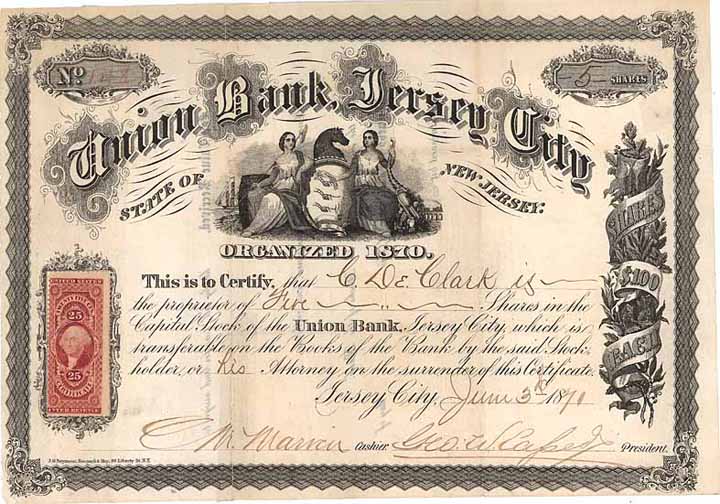 No.
5 SHARES
Union Bank, Jersey City
STATE OF NEW JERSEY.
ORGANIZED 1870.
SHARES
$100
EACH
This is to Certify, that C. De. Clark is
the proprietor of Five Shares in the
Capital Stock of the Union Bank, Jersey City, which is
transferable on the Books of the Bank by the said Stock-
holder, or his Attorney on the surrender of this Certificate.
Jersey City, June 3d 1870
UNITED STATES
25
25
CERTIFICATE
INTER. REVENUE
Cashier.
President.